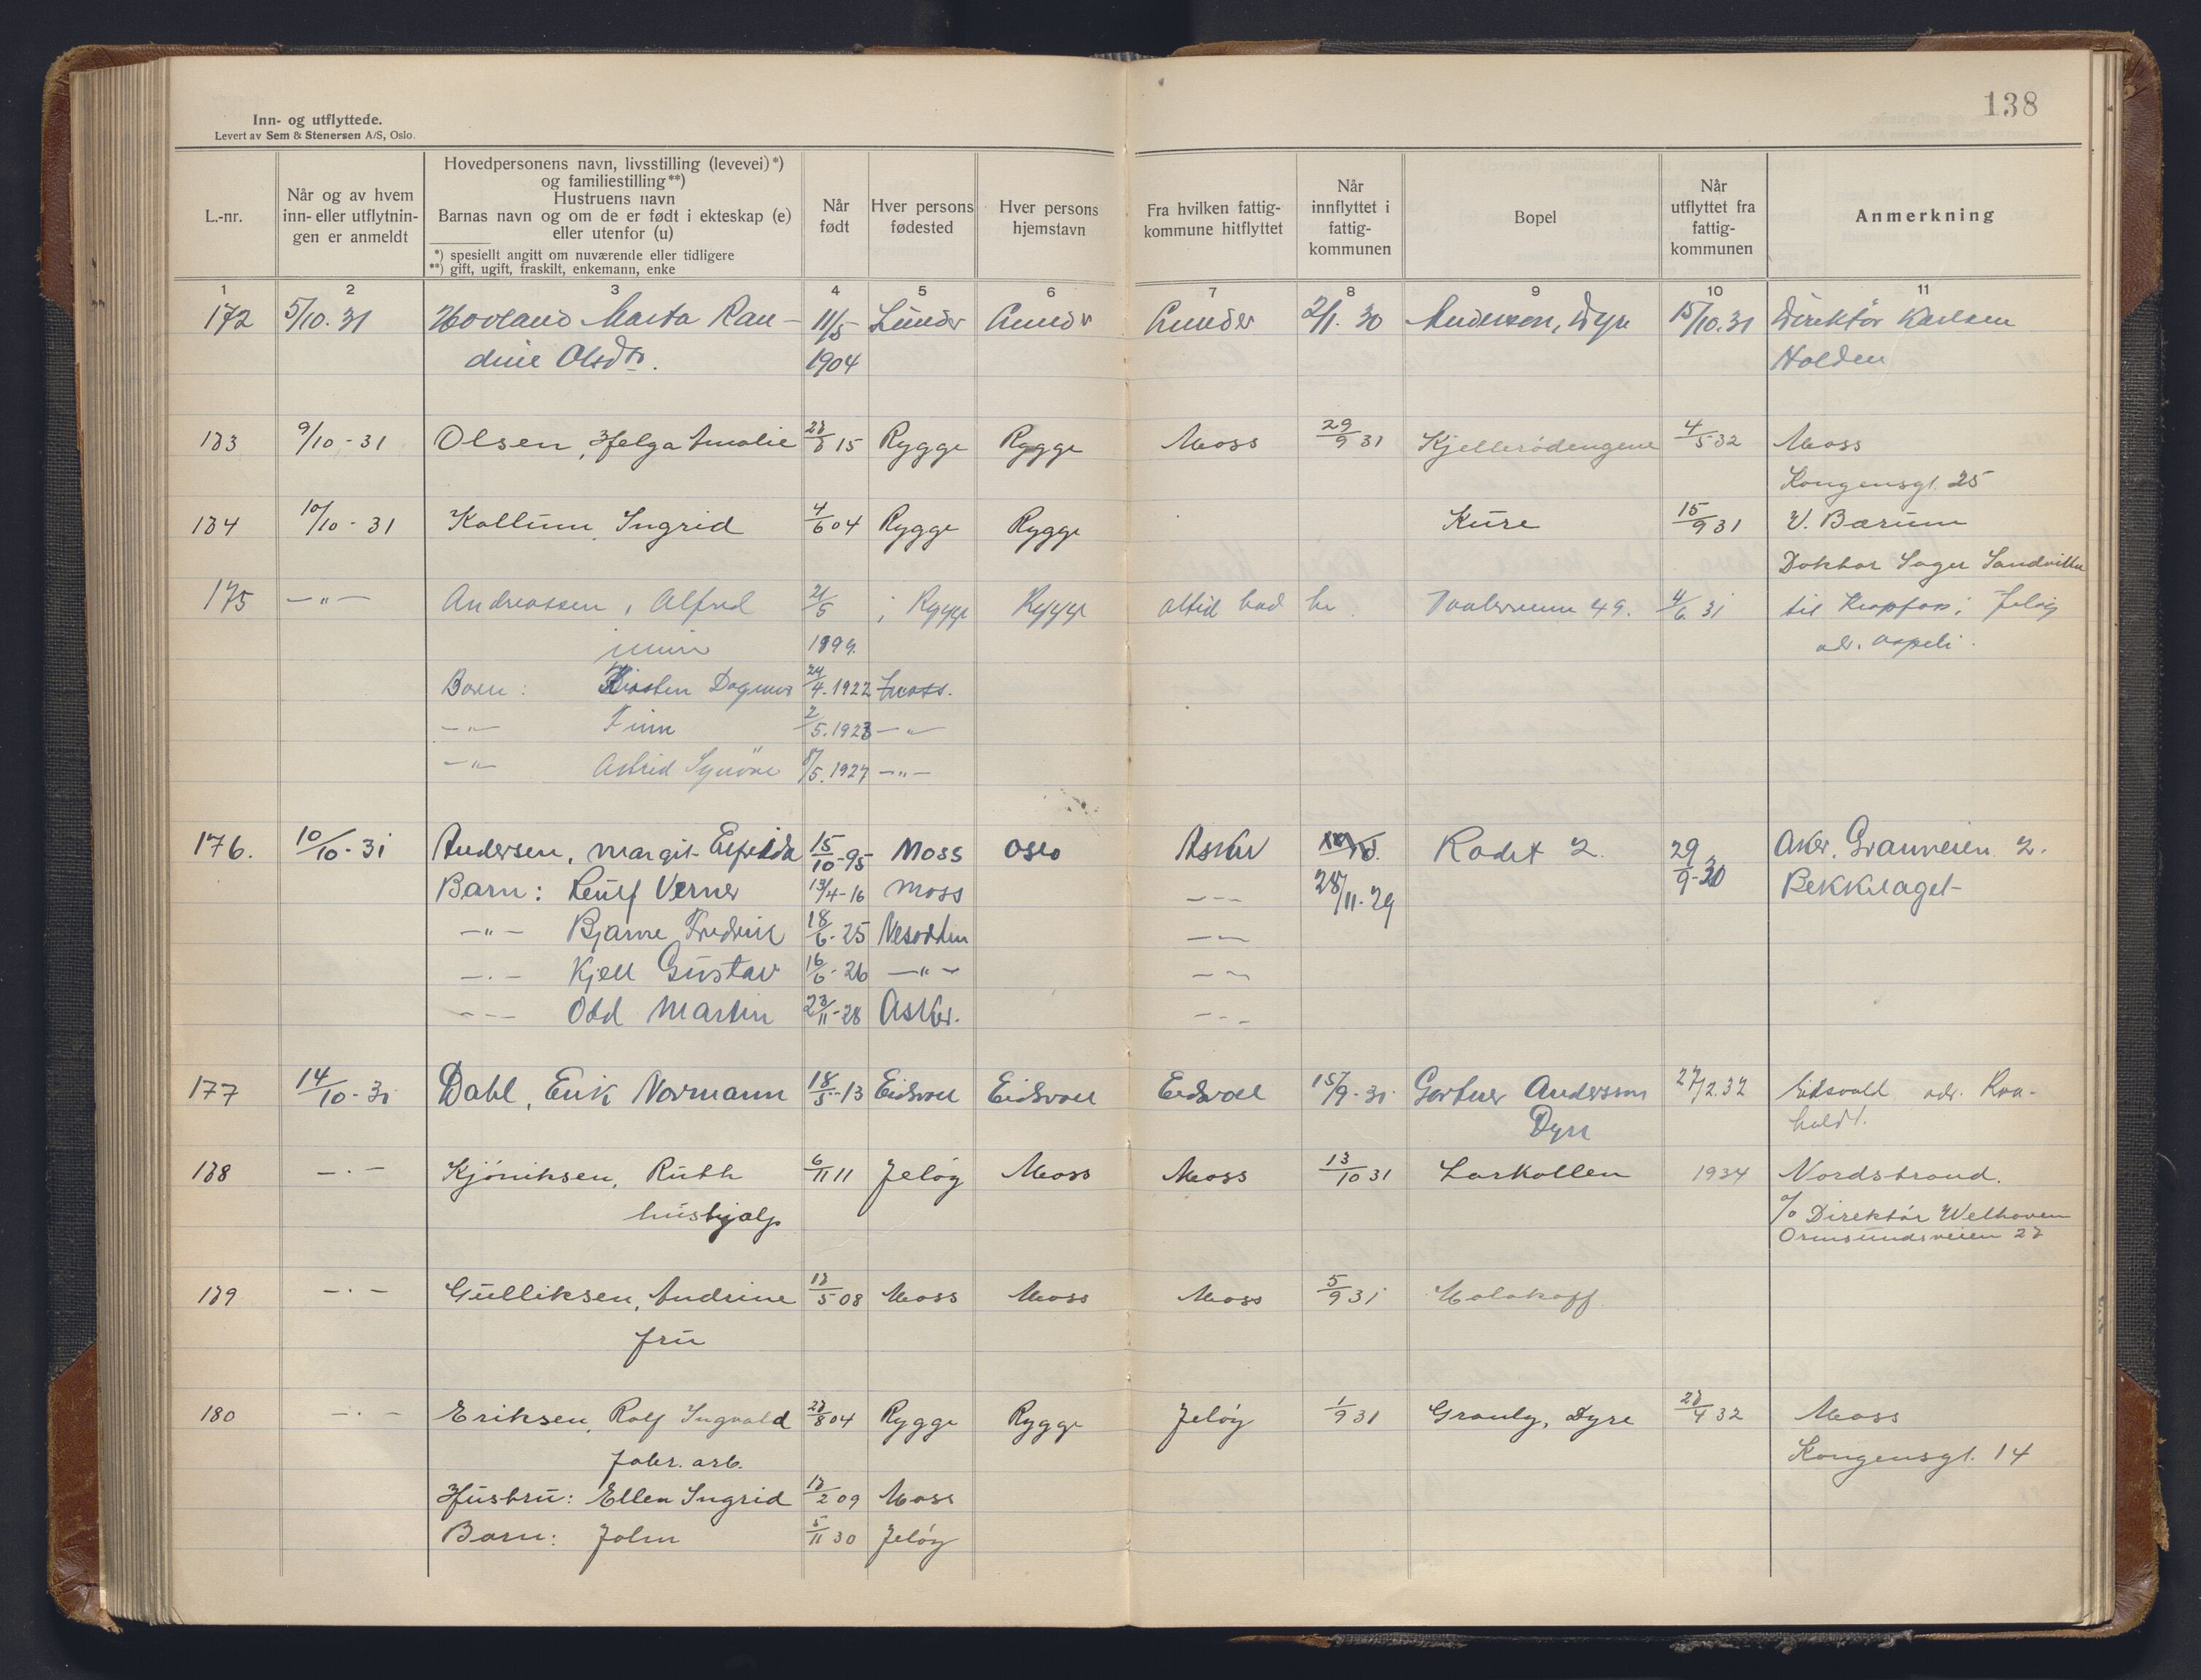 138
Inn- og utflyttede.
Levert av Sem & Stenersen A/S, Oslo.
L.-nr.
Når og av hvem inn- eller utflytnin-gen er anmeldt
Hovedpersonens navn, livsstilling (levevei) *)
og familiestilling **)
Hustruens navn
Barnas navn og om de er født i ekteskap (e)
eller utenfor (u)
*) spesiellt angitt om nuværende eller tidligere
**) gift, ugift, fraskilt, enkemann, enke
Når født
Hver persons fødested
Hver persons hjemstavn
Fra hvilken fattig-kommune hitflyttet
Når innflyttet i fattig-kommunen
Bopel
Når utflyttet fra fattig-kommunen
Anmerkning
1 2 3 4 5 6 7 8 9 10 11
172 5/10.31 Hovland Marta Ran- 11/5 Lunder 2/1.30 Andersen, Dyre 15/10.31 Direktør Karlsen
dine Olsdtr. 1904 Halden
173 9/10-31 Olsen, Helga Amalie 15 Rygge Rygge Moss 29/9 31 Kjellerødengene 4/5 32 Moss
Kongensgt. 25
174 10/10-31 Kollum, Ingrid 4/6 04 Rygge Rygge Kure 15/9 31 V. Bærum
Doktor Sager Sandvika
175 -"- Andreassen, Alfred 21/5 i Rygge Rygge altid bod her 49. 4/6.31 til i Jeløy
1899. adr. Aspeli.
Barn: Kirsten Dagmar 24/4.1922 Moss.
-"- Finn 2/5.1923 -"-
-"- Astrid Synøve 8/5.1927 -"-
176. 10/10-31 Andersen, Margit Elfrida 15/10-95 Moss Oslo Asker Rødet 2. 29/9-30 Aker. Granveien 2.
Barn: Leulf Verner 13/4-16 Moss --- 28/11-29 Bekkelaget
-"- Bjarne Fredrik 18/6-25 Nesodden ---
-"- Kjell Gustav 16/6-26 -"- ---
--- Odd Martin 23/11-28 Asker. ---
177 14/10-31 Dahl, Erik Normann 18/5-13 Eidsvoll Eidsvoll Eidsvoll 15/9-31 Gartner Anderson 27/2.32 Eidsvold adr. Raa-
Dyre holdt.
178 -"- Kjøniksen, Ruth 6/11 11 Jeløy Moss Moss 13/10 31 Larkollen 1934 Nordstrand.
hushjelp c/o Direktør Welhaven
Ormsundsveien 27
179 -"- Gulliksen, Andrine 17/5 08 Moss Moss Moss 5/9 31 Malakoff.
fru
180 -"- Eriksen, Rolf Ingvald 27/8 04 Rygge Rygge Jeløy 1/9 31 Granly, Dyre 27/4 32 Moss
fabr. arb. Kongensgt. 14
Hustru: Ellen Ingrid 17/2 09 Moss
Barn: John 5/11 30 Jeløy